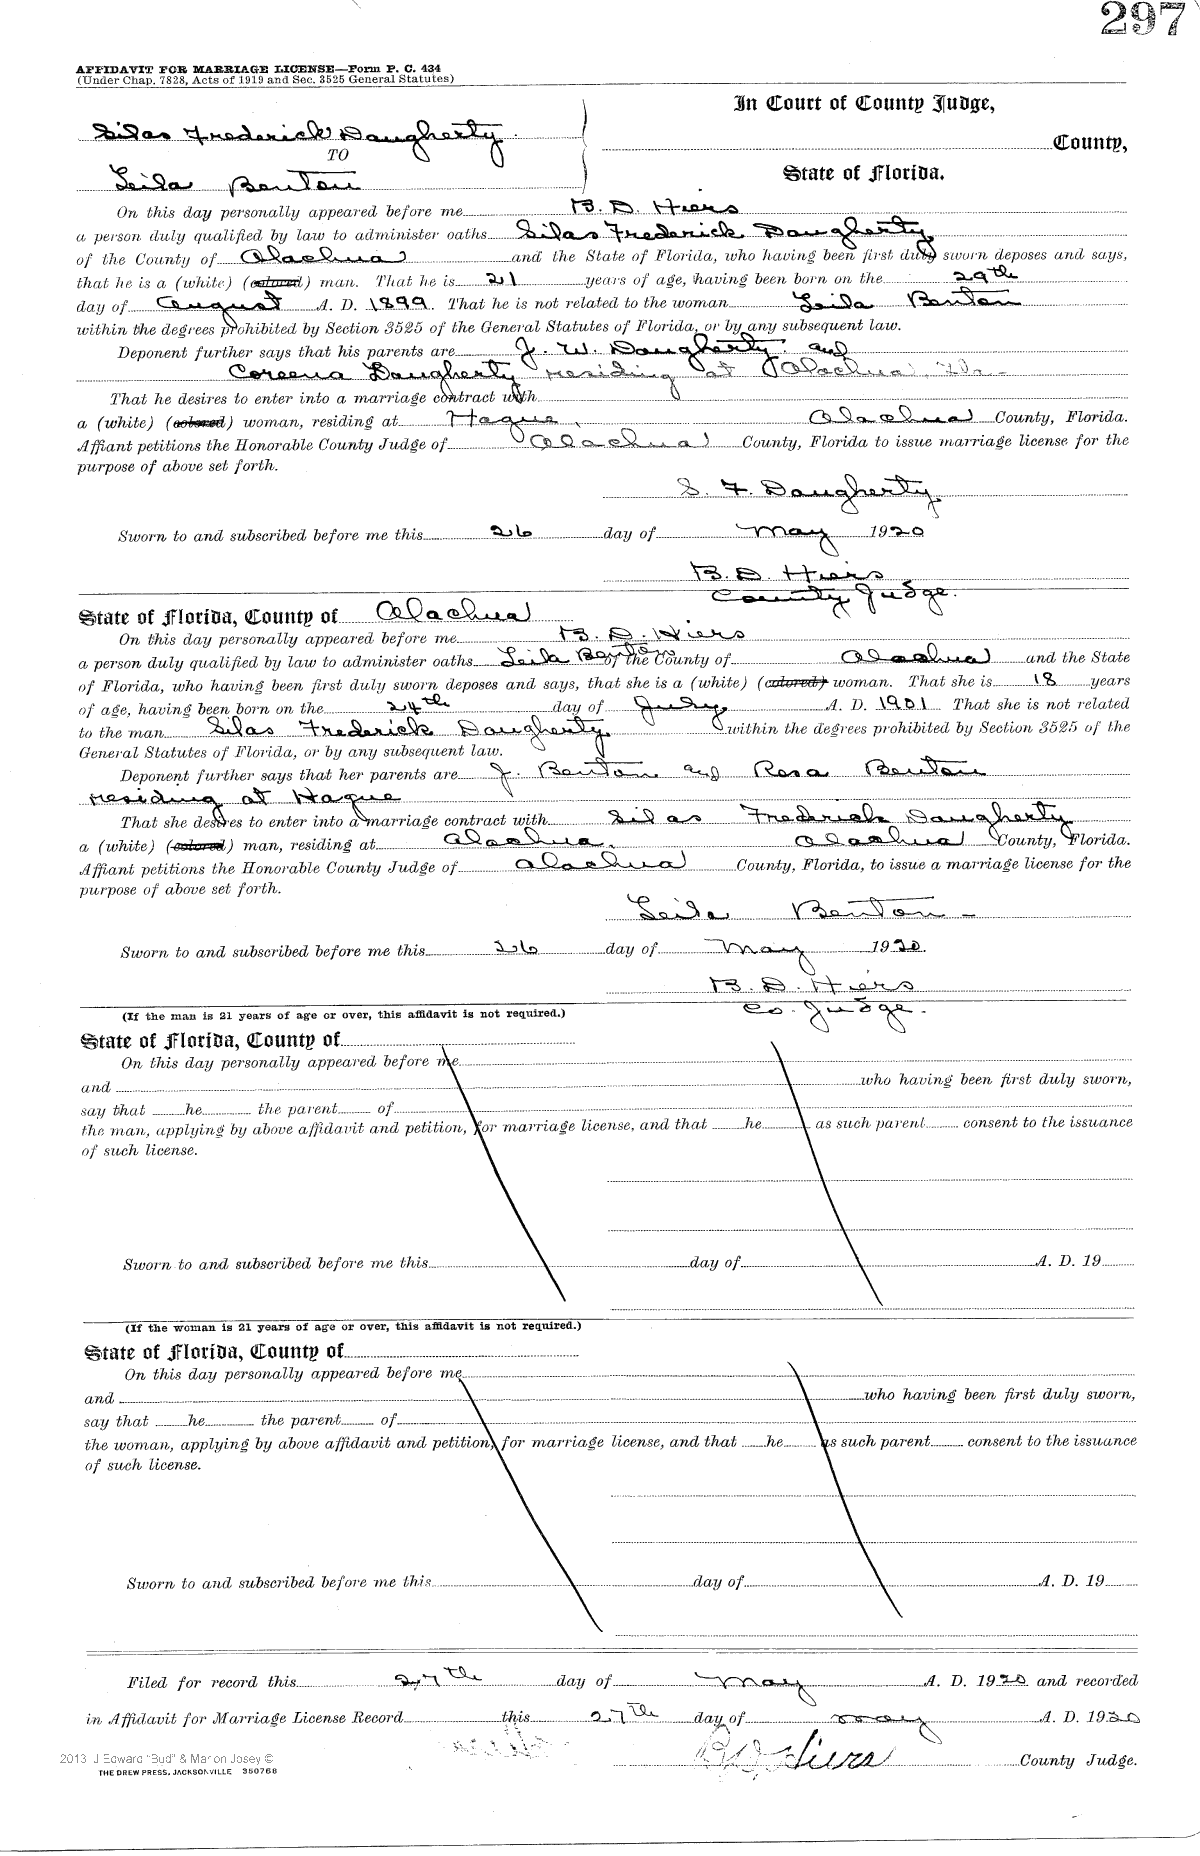 297
AFFIDAVIT FOR MARRIAGE LICENSE—Form P. C. 434
(Under Chap. 7828, Acts of 1919 and Sec. 3525 General Statutes)
In Court of County Judge,
Silas Frederick Daugherty
County,
TO
State of Florida.
Leila Benton
On this day personally appeared before me B. D. Hiers
a person duly qualified by law to administer oaths Silas Frederick Daugherty
of the County of Alachua and the State of Florida, who having been first duly sworn deposes and says,
that he is a (white) (colored) man. That he is 21 years of age, having been born on the 29th
day of August A. D. 1899. That he is not related to the woman Leila Benton
within the degrees prohibited by Section 3525 of the General Statutes of Florida, or by any subsequent law.
Deponent further says that his parents are J. W. Daugherty and
Coreena Daugherty residing at Alachua, Fla-
That he desires to enter into a marriage contract with
a (white) (colored) woman, residing at Hague, Alachua County, Florida.
Affiant petitions the Honorable County Judge of Alachua County, Florida to issue marriage license for the
purpose of above set forth.
S. F. Daugherty
Sworn to and subscribed before me this 26 day of May 1920
B. D. Hiers
County Judge.
State of Florida, County of Alachua
On this day personally appeared before me B. D. Hiers
a person duly qualified by law to administer oaths Leila Benton of the County of Alachua and the State
of Florida, who having been first duly sworn deposes and says, that she is a (white) (colored) woman. That she is 18 years
of age, having been born on the 24th day of July A. D. 1901 That she is not related
to the man Silas Frederick Daugherty within the degrees prohibited by Section 3525 of the
General Statutes of Florida, or by any subsequent law.
Deponent further says that her parents are J. Benton and Rosa Benton
residing at Hague
That she desires to enter into a marriage contract with Silas Frederick Daugherty
a (white) (colored) man, residing at Alachua, Alachua County, Florida.
Affiant petitions the Honorable County Judge of Alachua County, Florida, to issue a marriage license for the
purpose of above set forth.
Leila Benton -
Sworn to and subscribed before me this 26 day of May 1920.
B. D. Hiers
Co. Judge.
(If the man is 21 years of age or over, this affidavit is not required.)
State of Florida, County of
On this day personally appeared before me
and who having been first duly sworn,
say that he the parent of
the man, applying by above affidavit and petition, for marriage license, and that he as such parent consent to the issuance
of such license.
Sworn to and subscribed before me this day of A. D. 19
(If the woman is 21 years of age or over, this affidavit is not required.)
State of Florida, County of
On this day personally appeared before me
and who having been first duly sworn,
say that he the parent of
the woman, applying by above affidavit and petition, for marriage license, and that he as such parent consent to the issuance
of such license.
Sworn to and subscribed before me this day of A. D. 19
Filed for record this 27th day of May A. D. 1920 and recorded
in Affidavit for Marriage License Record this 27th day of May A. D. 1920
B D Hiers County Judge.
2013 J Edward "Bud" & Marion Josey ©
THE DREW PRESS, JACKSONVILLE 350768